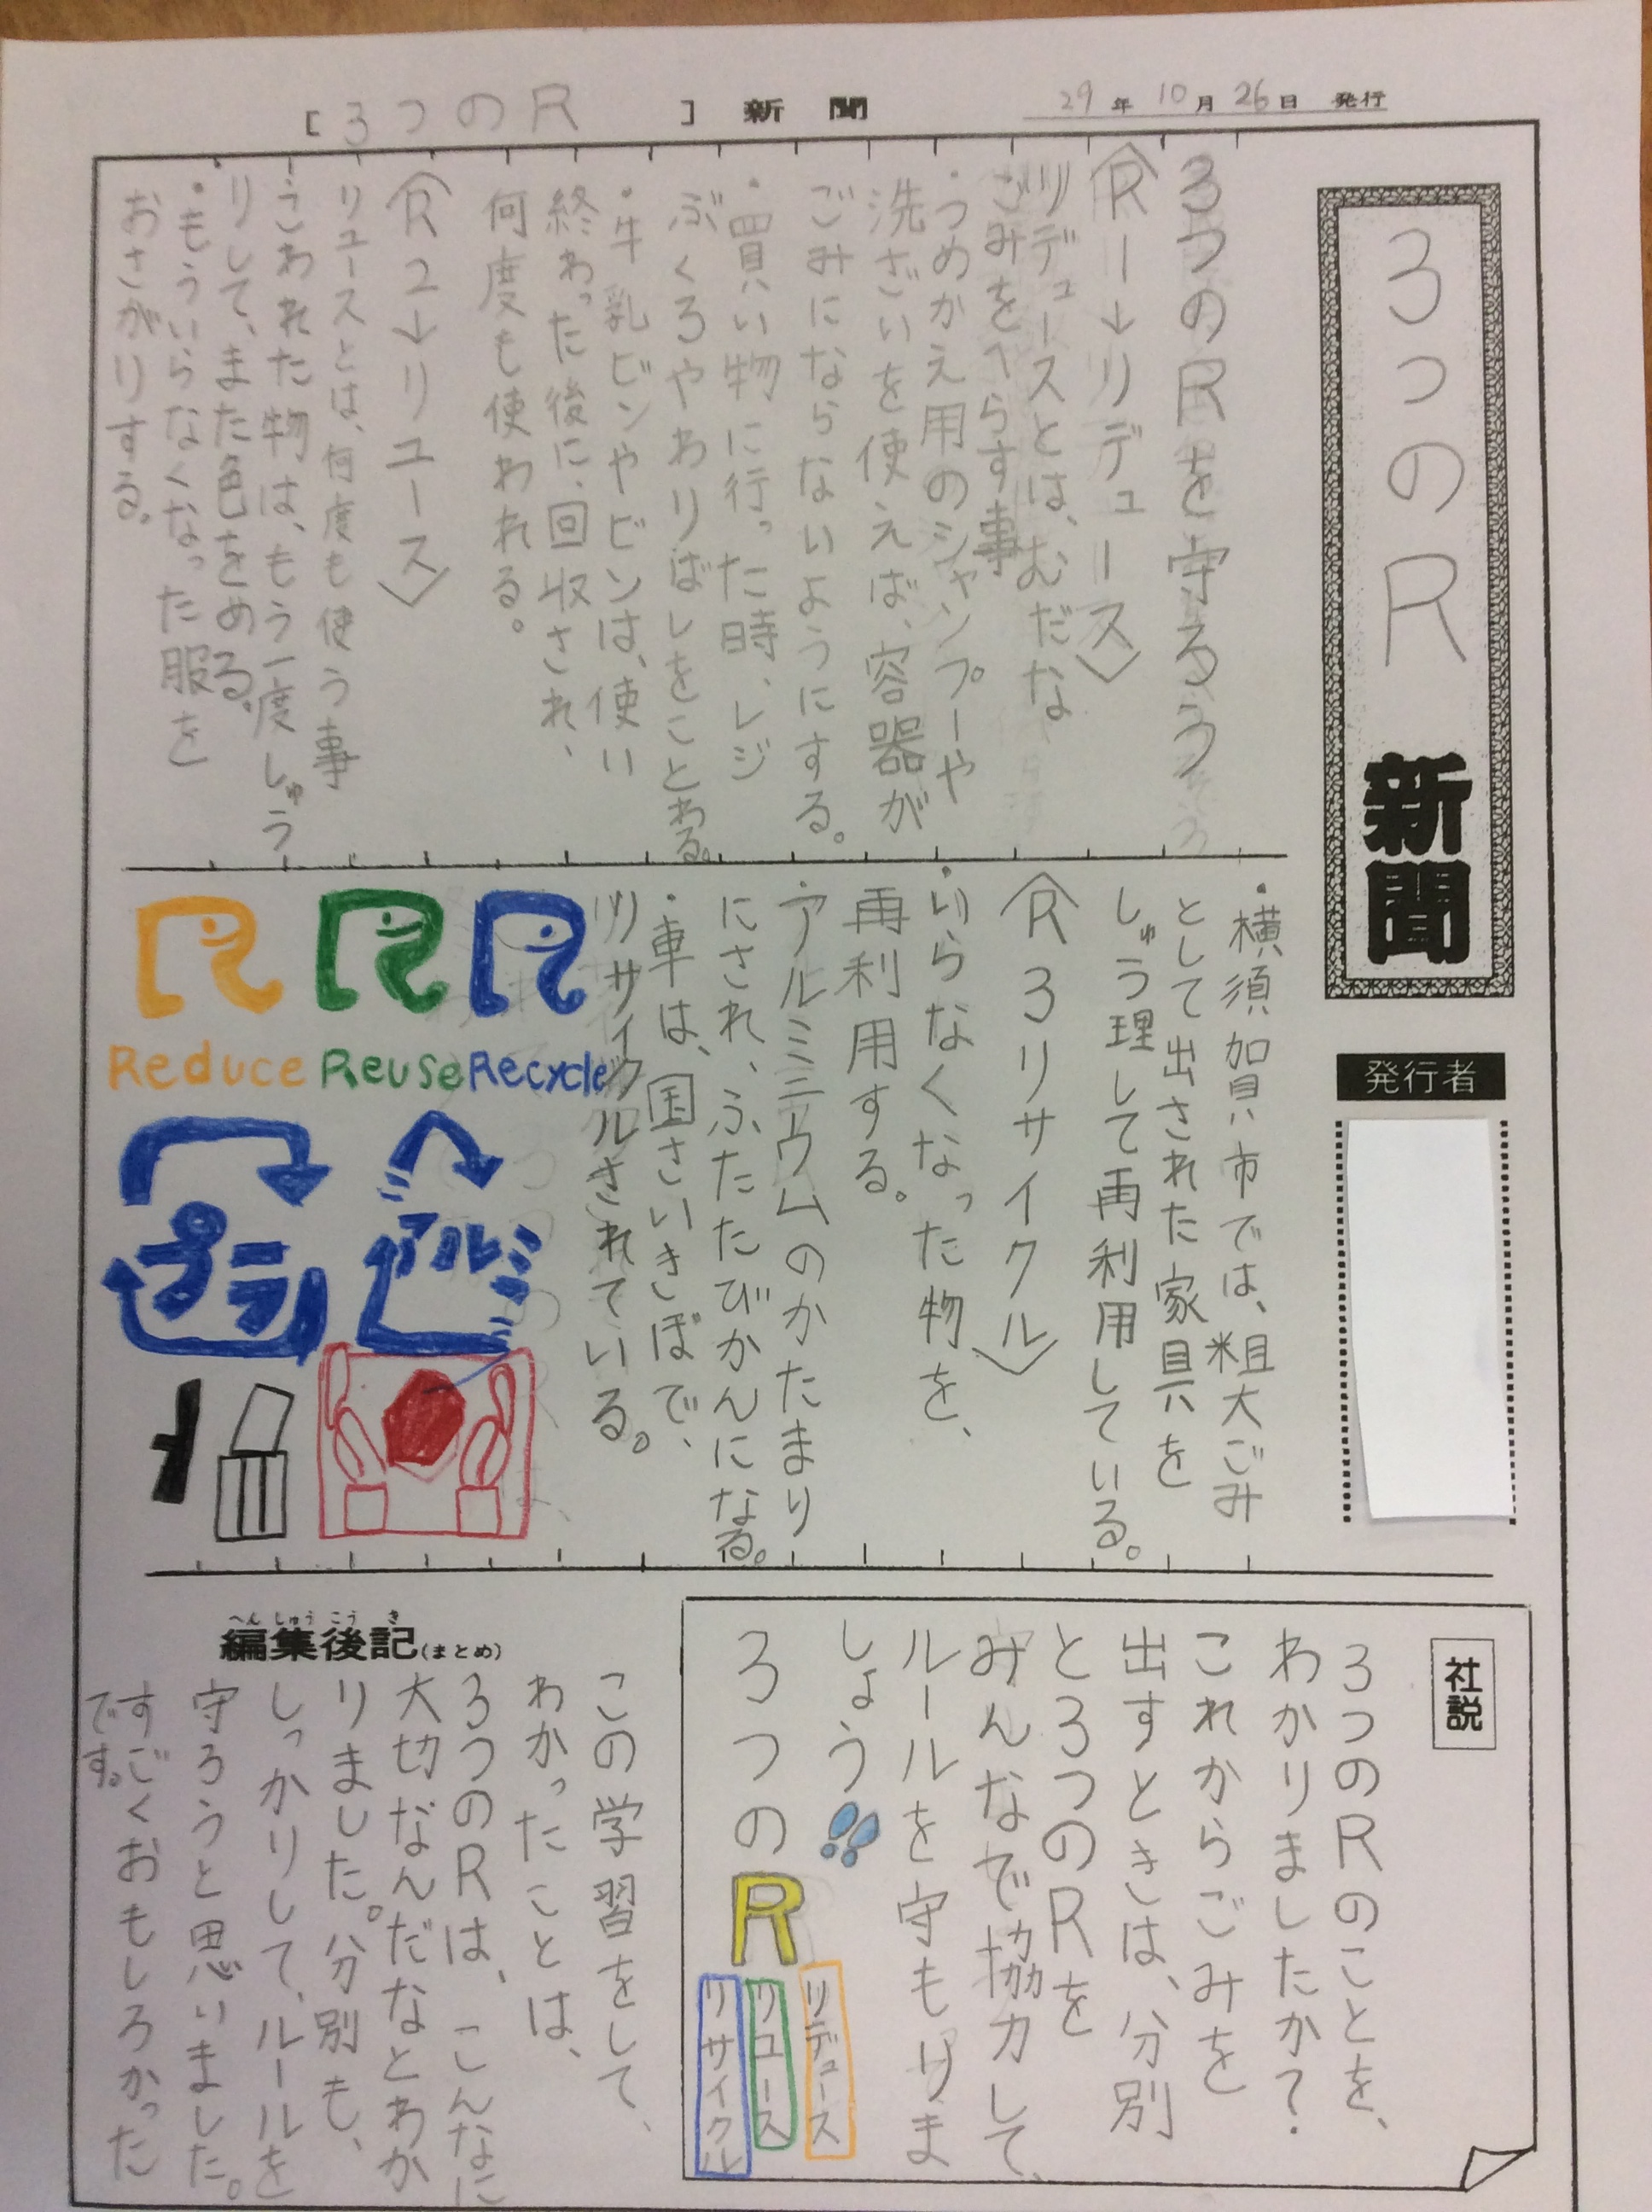 [ 3つのR ] 新聞
29年10月26日 発行
3つのR新聞
発行者
3つのRを守ろう
〈R1→リデュース〉
リデュースとは、むだな
ごみをへらす事
・つめかえ用のシャンプーや
洗ざいを使えば、容器が
ごみにならないようにする。
・買い物に行った時、レジ
ぶくろやわりばしをことわる。
・牛乳ビンやビンは、使い
終わった後に、回収され、
何度も使われる。
〈R2→リユース〉
リユースとは、何度も使う事
・こわれた物は、もう一度しゅう
りして、また色をぬる。
・もういらなくなった服を
おさがりする。
・横須賀市では、粗大ごみ
として出された家具を
しゅう理して再利用している。
〈R3リサイクル〉
・いらなくなった物を、
再利用する。
・アルミニウムのかたまり
にされ、ふたたびかんになる。
・車は、国さいきぼで、
リサイクルされている。
Recycle
Reuse
Reduce
アルミ
プラ
社説
3つのRのことを、
わかりましたか?
これからごみを
出すときは、分別
と3つのRを
みんなで協力して、
ルールを守もりま
しょう!!
3つのR
リデュース
リユース
リサイクル
編集後記(まとめ)
へんしゅうこうき
この学習をして、
わかったことは、
3つのRは、こんなに
大切なんだなとわか
りました。分別も、
しっかりして、ルールを
守ろうと思いました。
すごくおもしろかった
です。